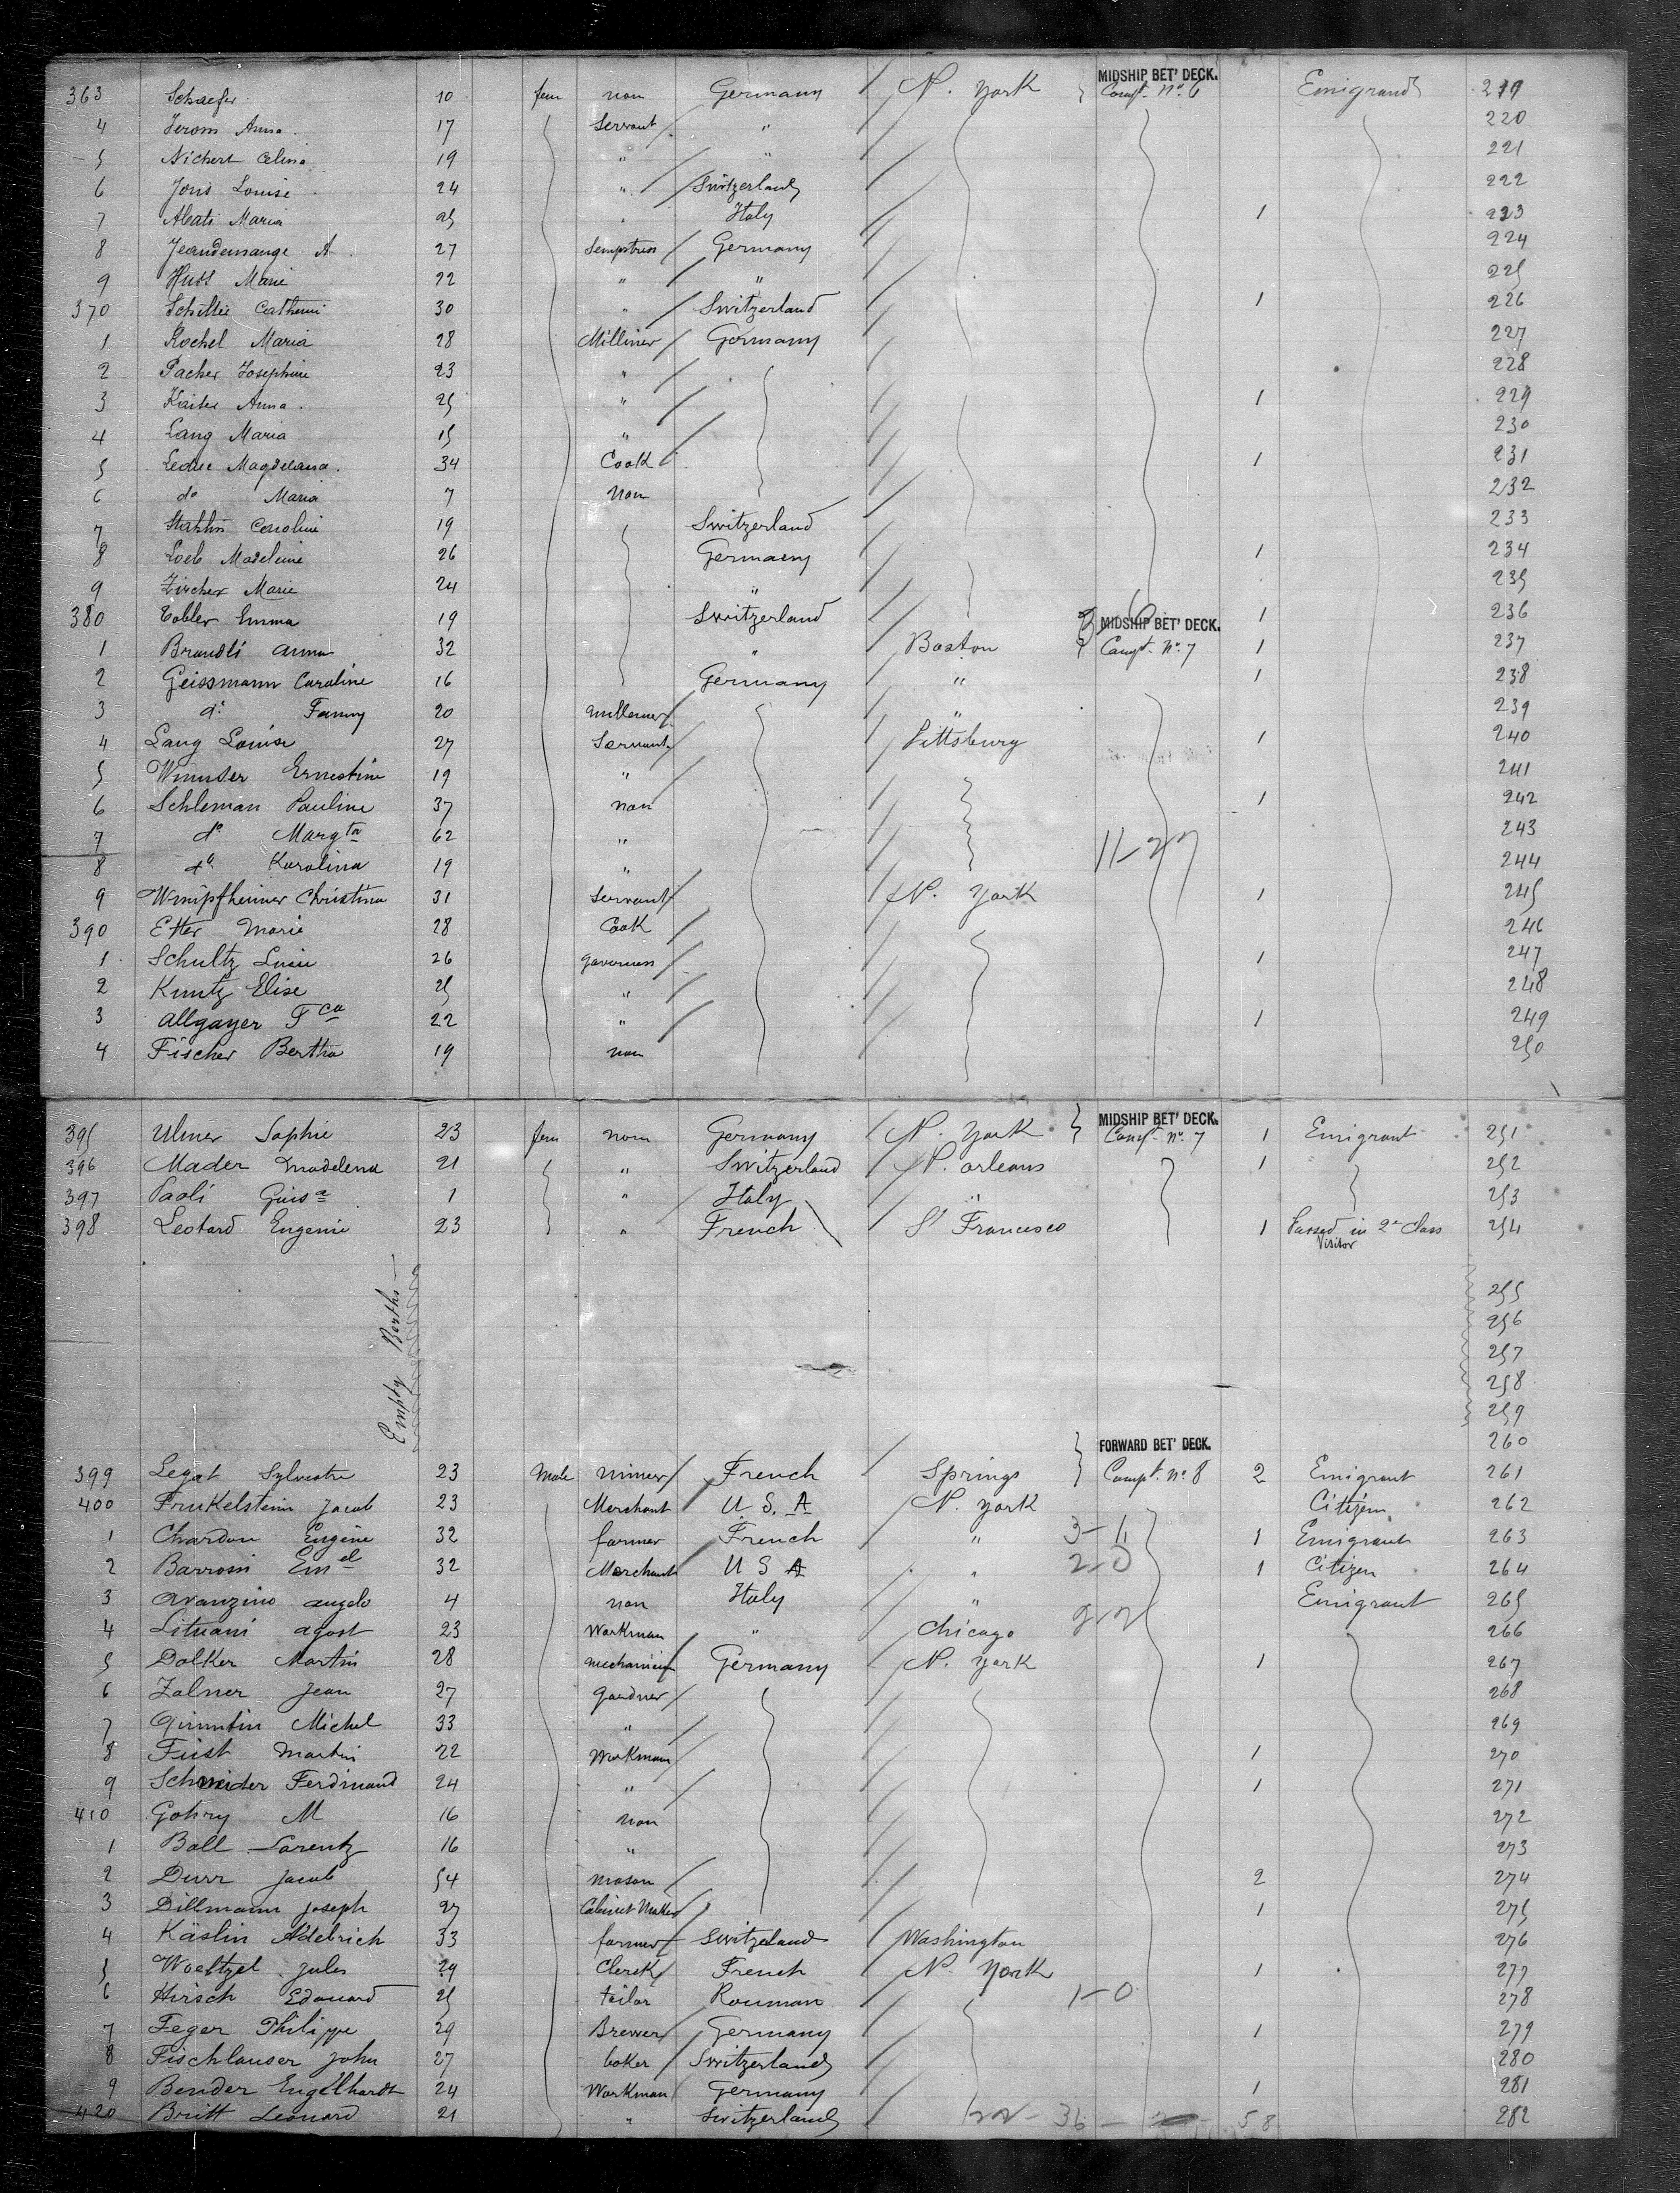 363 Schaefer 10 fem non Germany N. York MIDSHIP BET' DECK. Compt. No. 6 Emigrand 219
4 Jerom Anna 17 Servant " 220
5 Nichert Celina 19 " " 221
6 Joris Louise 24 " Switzerland 222
7 Abati Maria 25 " Italy 1 223
8 Jeandemange A. 27 Sempstress Germany 224
9 Huss Marie 22 " " 225
370 Catherni 30 " Switzerland 1 226
1 Rochel Maria 28 Milliner Germany 227
2 Pacher Josephine 23 " 228
3 Anna 25 " 1 229
4 Lang Maria 15 " 230
5 Leduc Magdelana 34 Cook 1 231
6 do Maria 7 non 232
7 Caroline 19 Switzerland 233
8 Loeb Madeleine 26 Germany 1 234
9 Zircher Marie 24 " 235
380 Tobler Emma 19 Switzerland 1 236
1 Brandli Anna 32 " Boston MIDSHIP BET' DECK. Compt. No. 7 1 237
2 Geissmann Caroline 16 Germany " 1 238
3 do Fanny 20 " 239
4 Lang Louise 27 Servant Pittsburg 1 240
5 Ernestine 19 " 241
6 Schleman Pauline 37 non 1 242
7 do Margta 62 " 243
8 do Karolina 19 " 11-27 244
9 Wimpfheimer Christina 31 Servant N. York 1 245
390 Etter Marie 28 Cook 246
1 Schultz 26 governess 1 247
2 Kuntz Elise 25 " 248
3 Allgayer Fca 22 " 1 249
4 Fischer Bertha 19 non 250
395 Ulmer Sophie 23 fem non Germany N. York MIDSHIP BET' DECK. Compt. No. 7 1 Emigrant 251
396 Mader Madelena 21 " Switzerland N. orleans 1 252
397 Paoli Guisa 1 " Italy " 253
398 Leotard Eugenie 23 " French St Francesco 1 Passed in 2e Class 254
Visitor
Empty Berths
255
256
257
258
259
FORWARD BET' DECK. 260
399 Legat Sylvestre 23 Male miner French Springs Compt. No. 8 2 Emigrant 261
400 Frukelstein Jacob 23 Merchant U. S. A N. York Citizen 262
1 Chardon Eugène 32 farmer French " 3-11 1 Emigrant 263
2 Barrossi Emel 32 Merchant U S A " 2-0 1 Citizen 264
3 Avanzino angelo 4 non Italy " Emigrant 265
4 Lituani agost 23 Workman " Chicago 266
5 Dolker Martin 28 mechanician Germany N. York 1 267
6 Zalner Jean 27 gardner 268
7 Quintin Michel 33 " 269
8 Fust Martin 22 Workman 1 270
9 Schneider Ferdinand 24 " 1 271
410 Gohry M 16 non 272
1 Ball Lorentz 16 " 273
2 Durr Jacob 54 mason 2 274
3 Dillmann Joseph 27 Cabinet Maker 1 275
4 Käslin Adelrich 33 farmer Switzerland Washington 276
5 Woeltzel Jules 29 Clerck French N. York 1 277
6 Hirsch Edouard 25 tailor Rouman 1-0 278
7 Feger Philippe 29 Brewer Germany 1 279
8 Fischlauser John 27 baker Switzerland 280
9 Bender Engelhardt 24 Workman Germany 1 281
420 Britt Leonard 21 " Switzerland 36 58 282